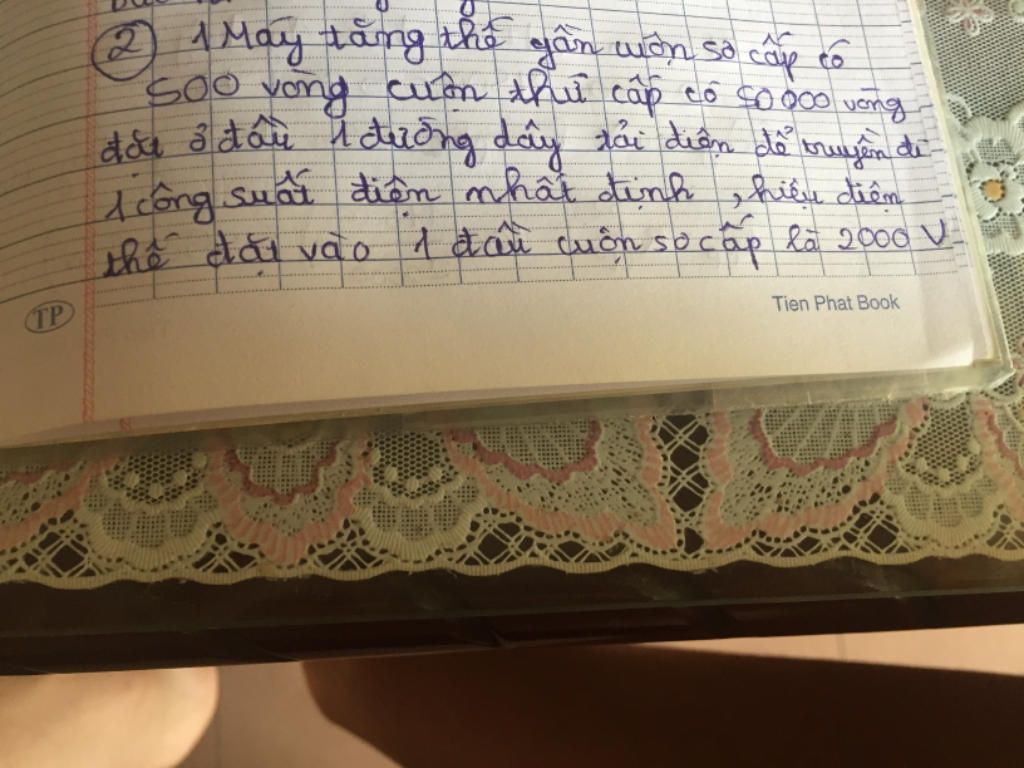 ② 1 Máy tăng thế gần cuộn sơ cấp có
500 vòng cuộn thứ cấp có 50 000 vòng
đặt ở đầu 1 đường dây tải điện để truyền đi
1 công suất điện nhất định, hiệu điện
thế đặt vào 1 đầu cuộn sơ cấp là 2000 V
TP
Tien Phat Book